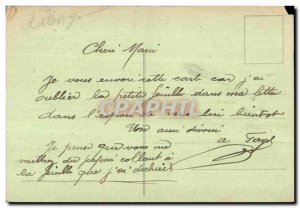 Cheri Marie
Je vous envoi cette carte car j'ai
oublier la petite feuille dans ma lettre
dans l'espoir de vous lire bientot
Von ami dévoué
a
Je pense que vous me
mettrez du papier collant à
la feuille que j'ai déchiré
CPAPHIL